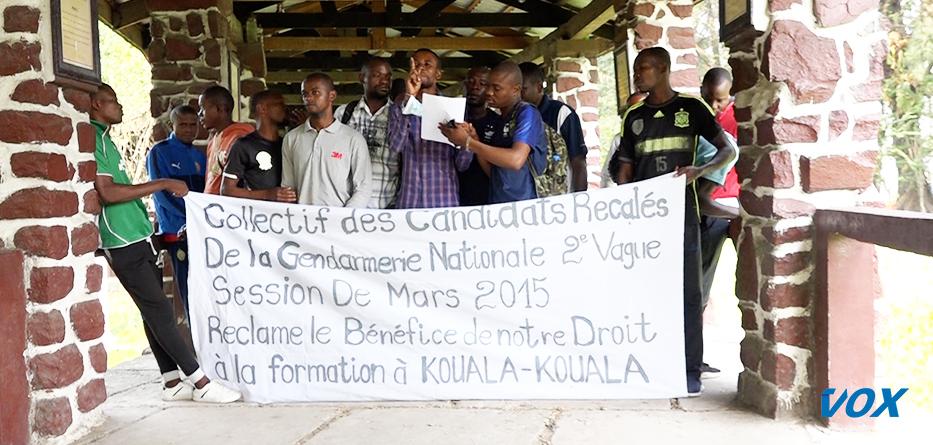 Collectif des Candidats Recalés
De la Gendarmerie Nationale 2e Vague
Session De Mars 2015
Réclame le Bénéfice de notre Droit
à la formation à KOUALA-KOUALA
3M
15
VOX